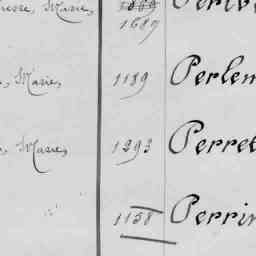 Marie,
1689
Marie, 1189 Perlem
Marie, 1293 Perret
1158 Perrin